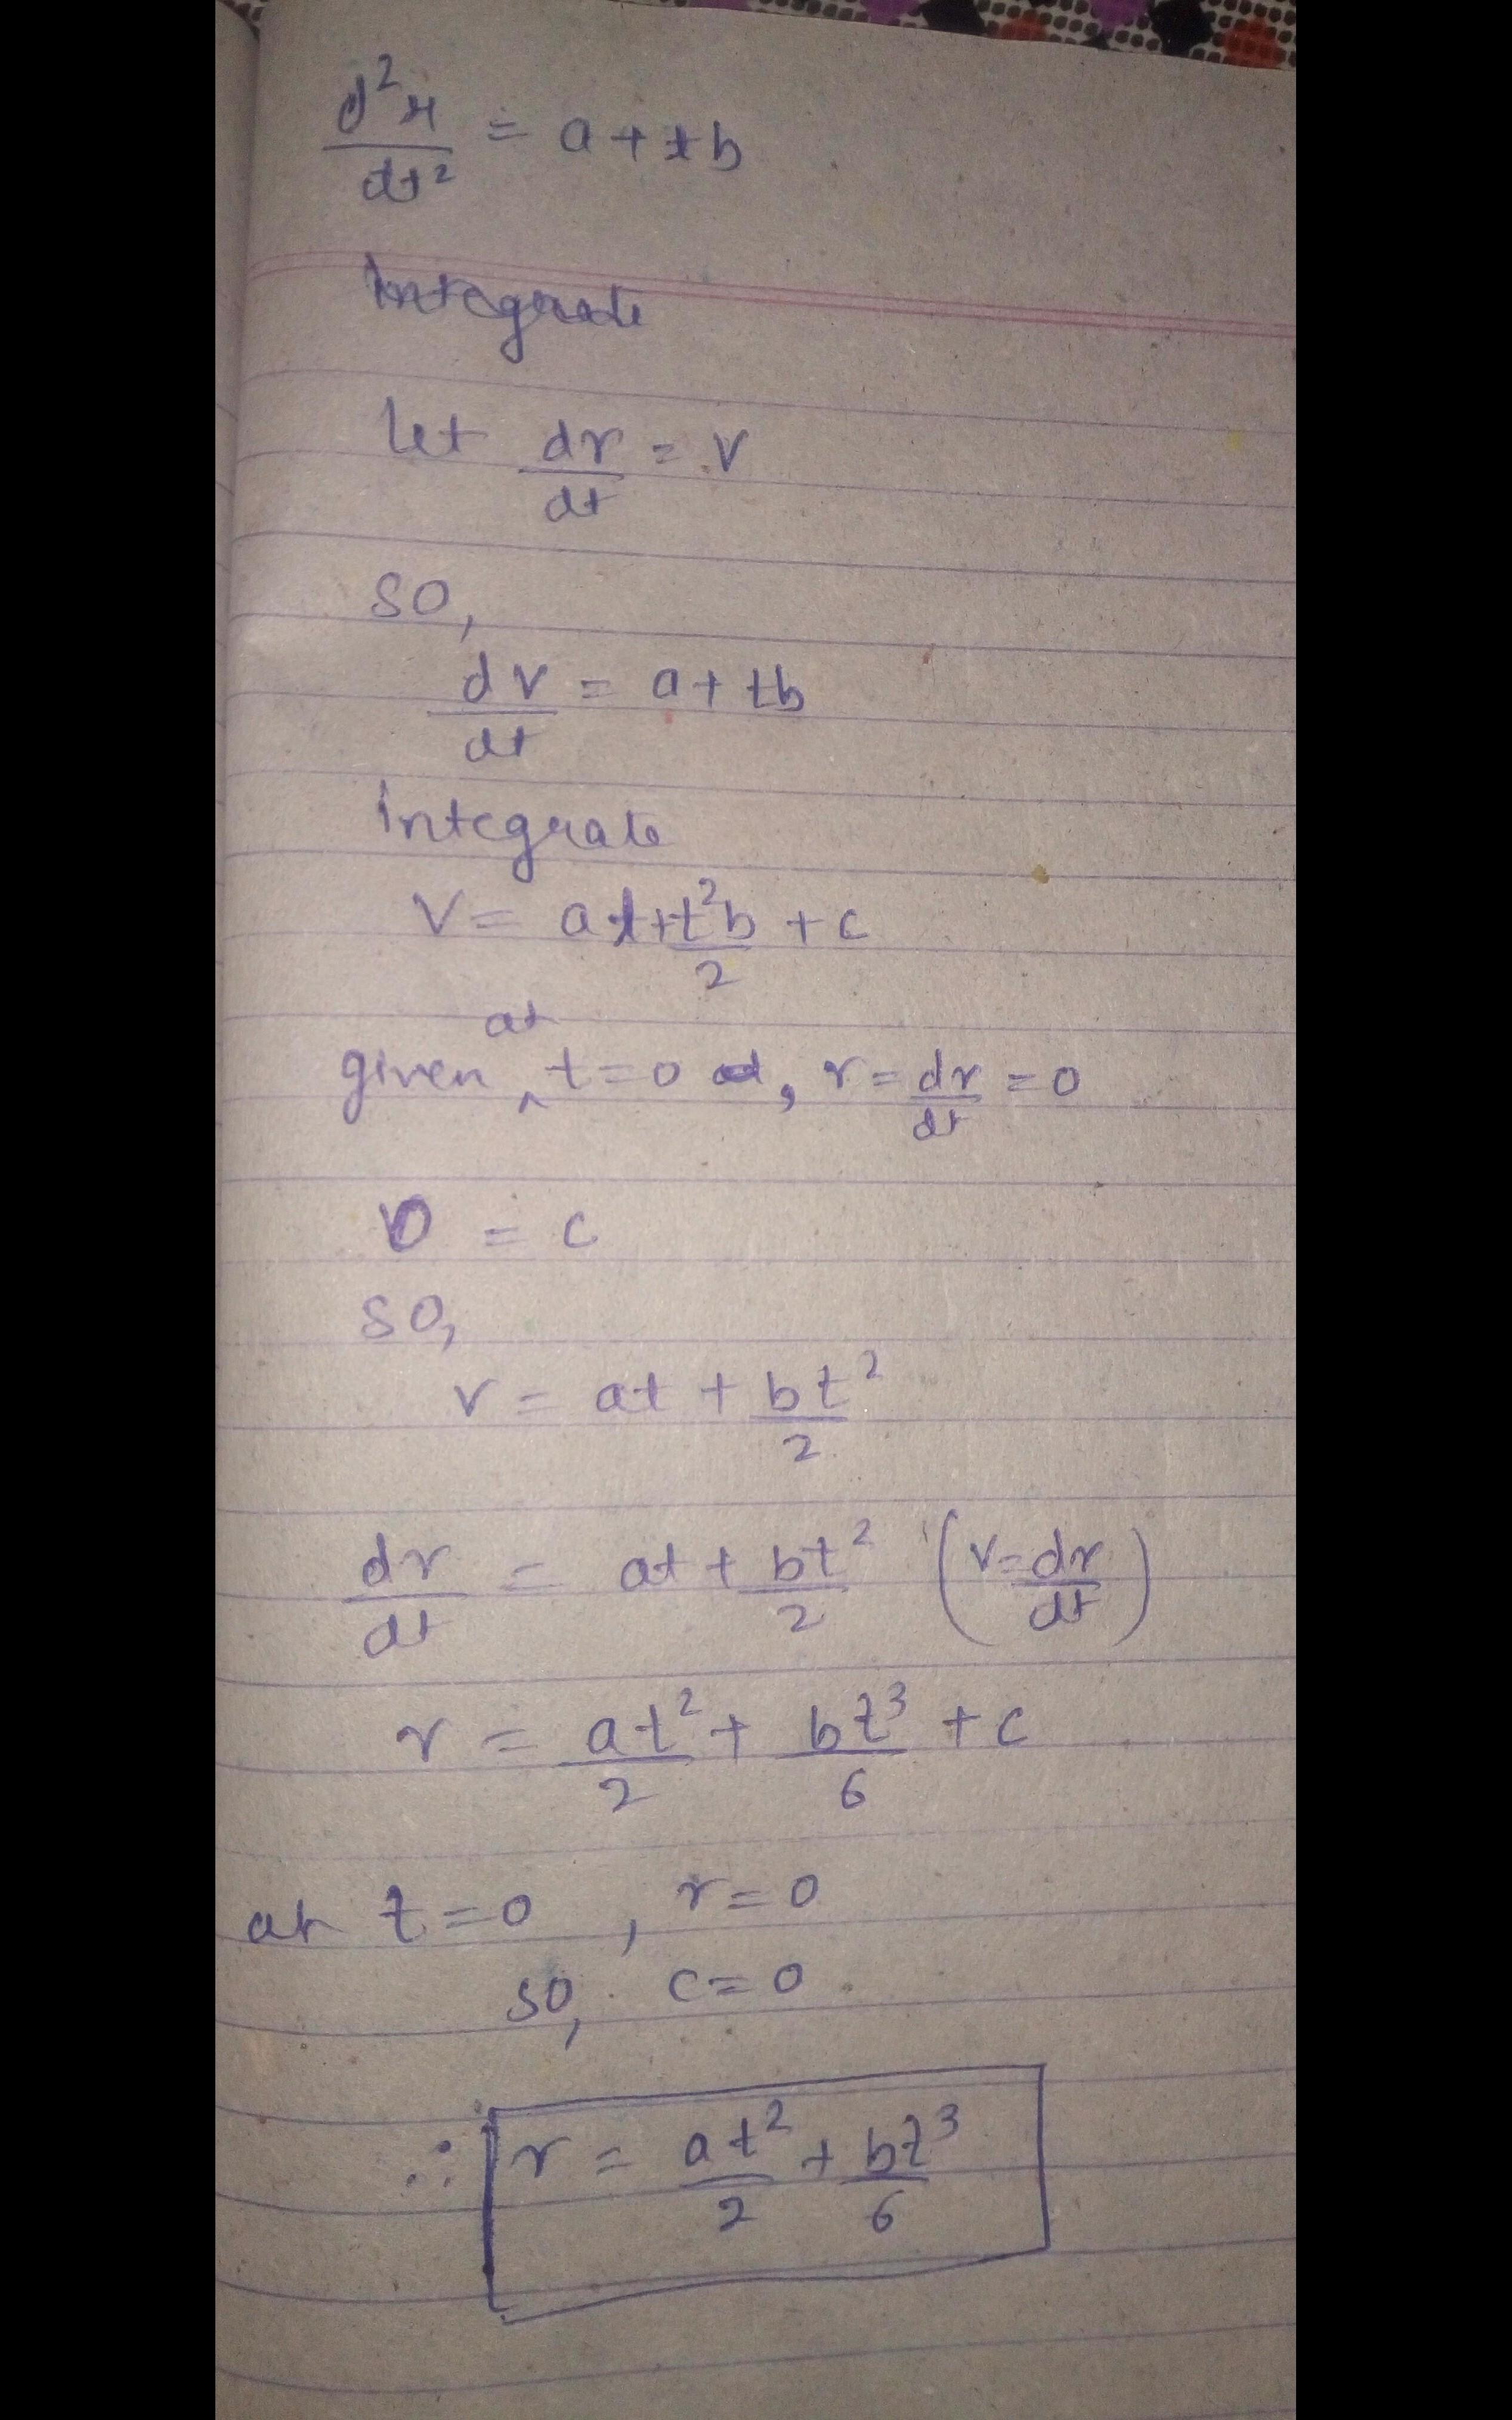 d²r/dt² = a + tb
Integrate
let dr/dt = v
so,
dv/dt = a + tb
integrate
V = at + t²b/2 + c
given at t=0, r = dr/dt = 0
0 = c
so,
v = at + bt²/2
dr/dt = at + bt²/2 (v = dr/dt)
r = at²/2 + bt³/6 + c
at t=0, r=0
so, c=0.
∴ r = at²/2 + bt³/6